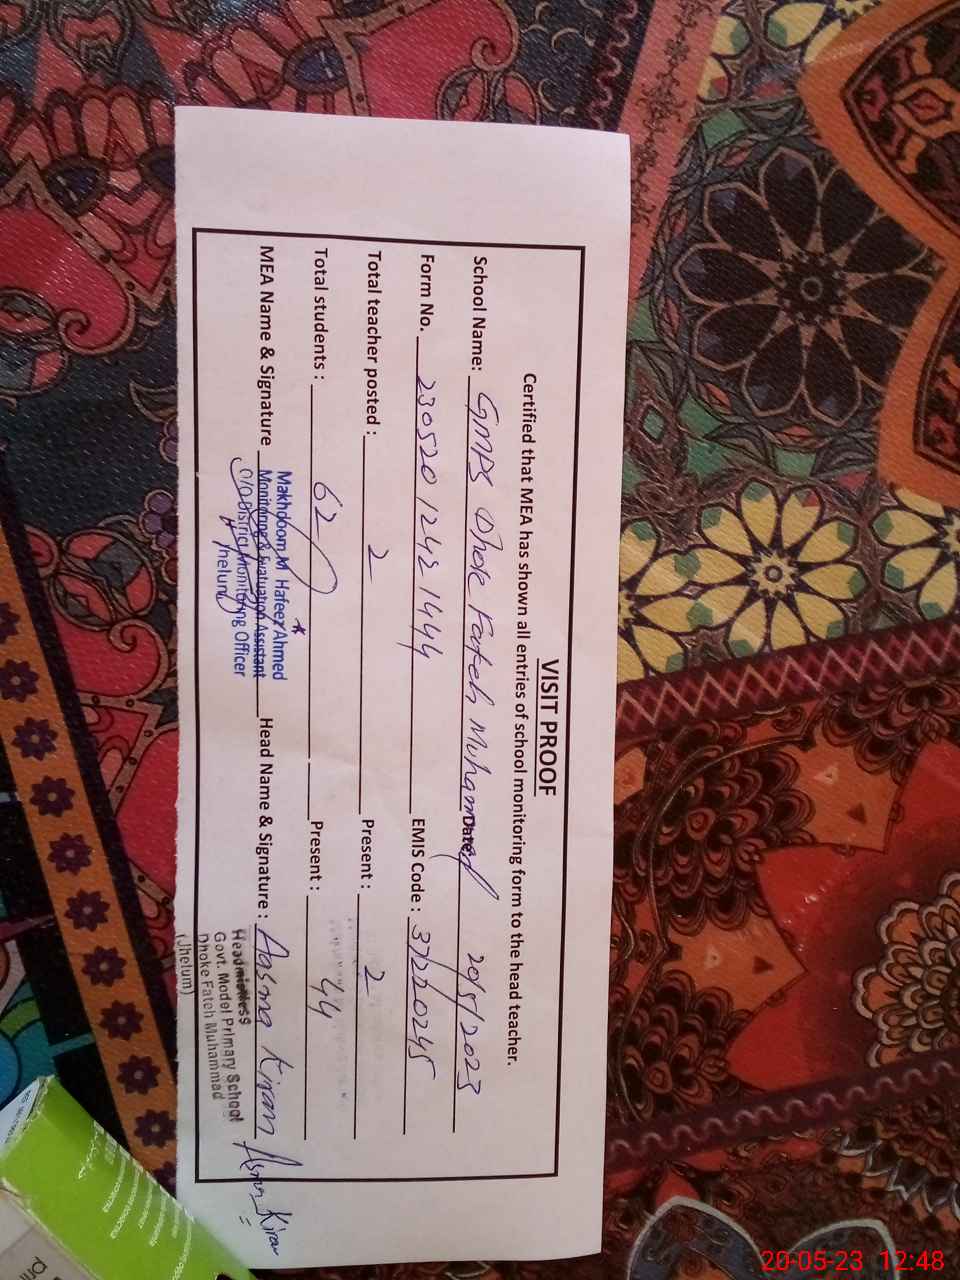 VISIT PROOF
Certified that MEA has shown all entries of school monitoring form to the head teacher.
School Name: GMPS Dhok Fateh Muhammad Date: 20/5/2023
Form No. 230520 1242 1444 EMIS Code: 37220245
Total teacher posted: 2 Present: 2
Total students: 62 Present: 44
MEA Name & Signature Makhdoom M Hafeez Ahmed Head Name & Signature: Aasma Kiran Asma Kiran
Monitoring & Evaluation Assistant
O/o District Monitoring Officer
Jhelum
Headmistress
Govt. Model Primary School
Dhoke Fateh Muhammad
(Jhelum)
20-05-23 12:48